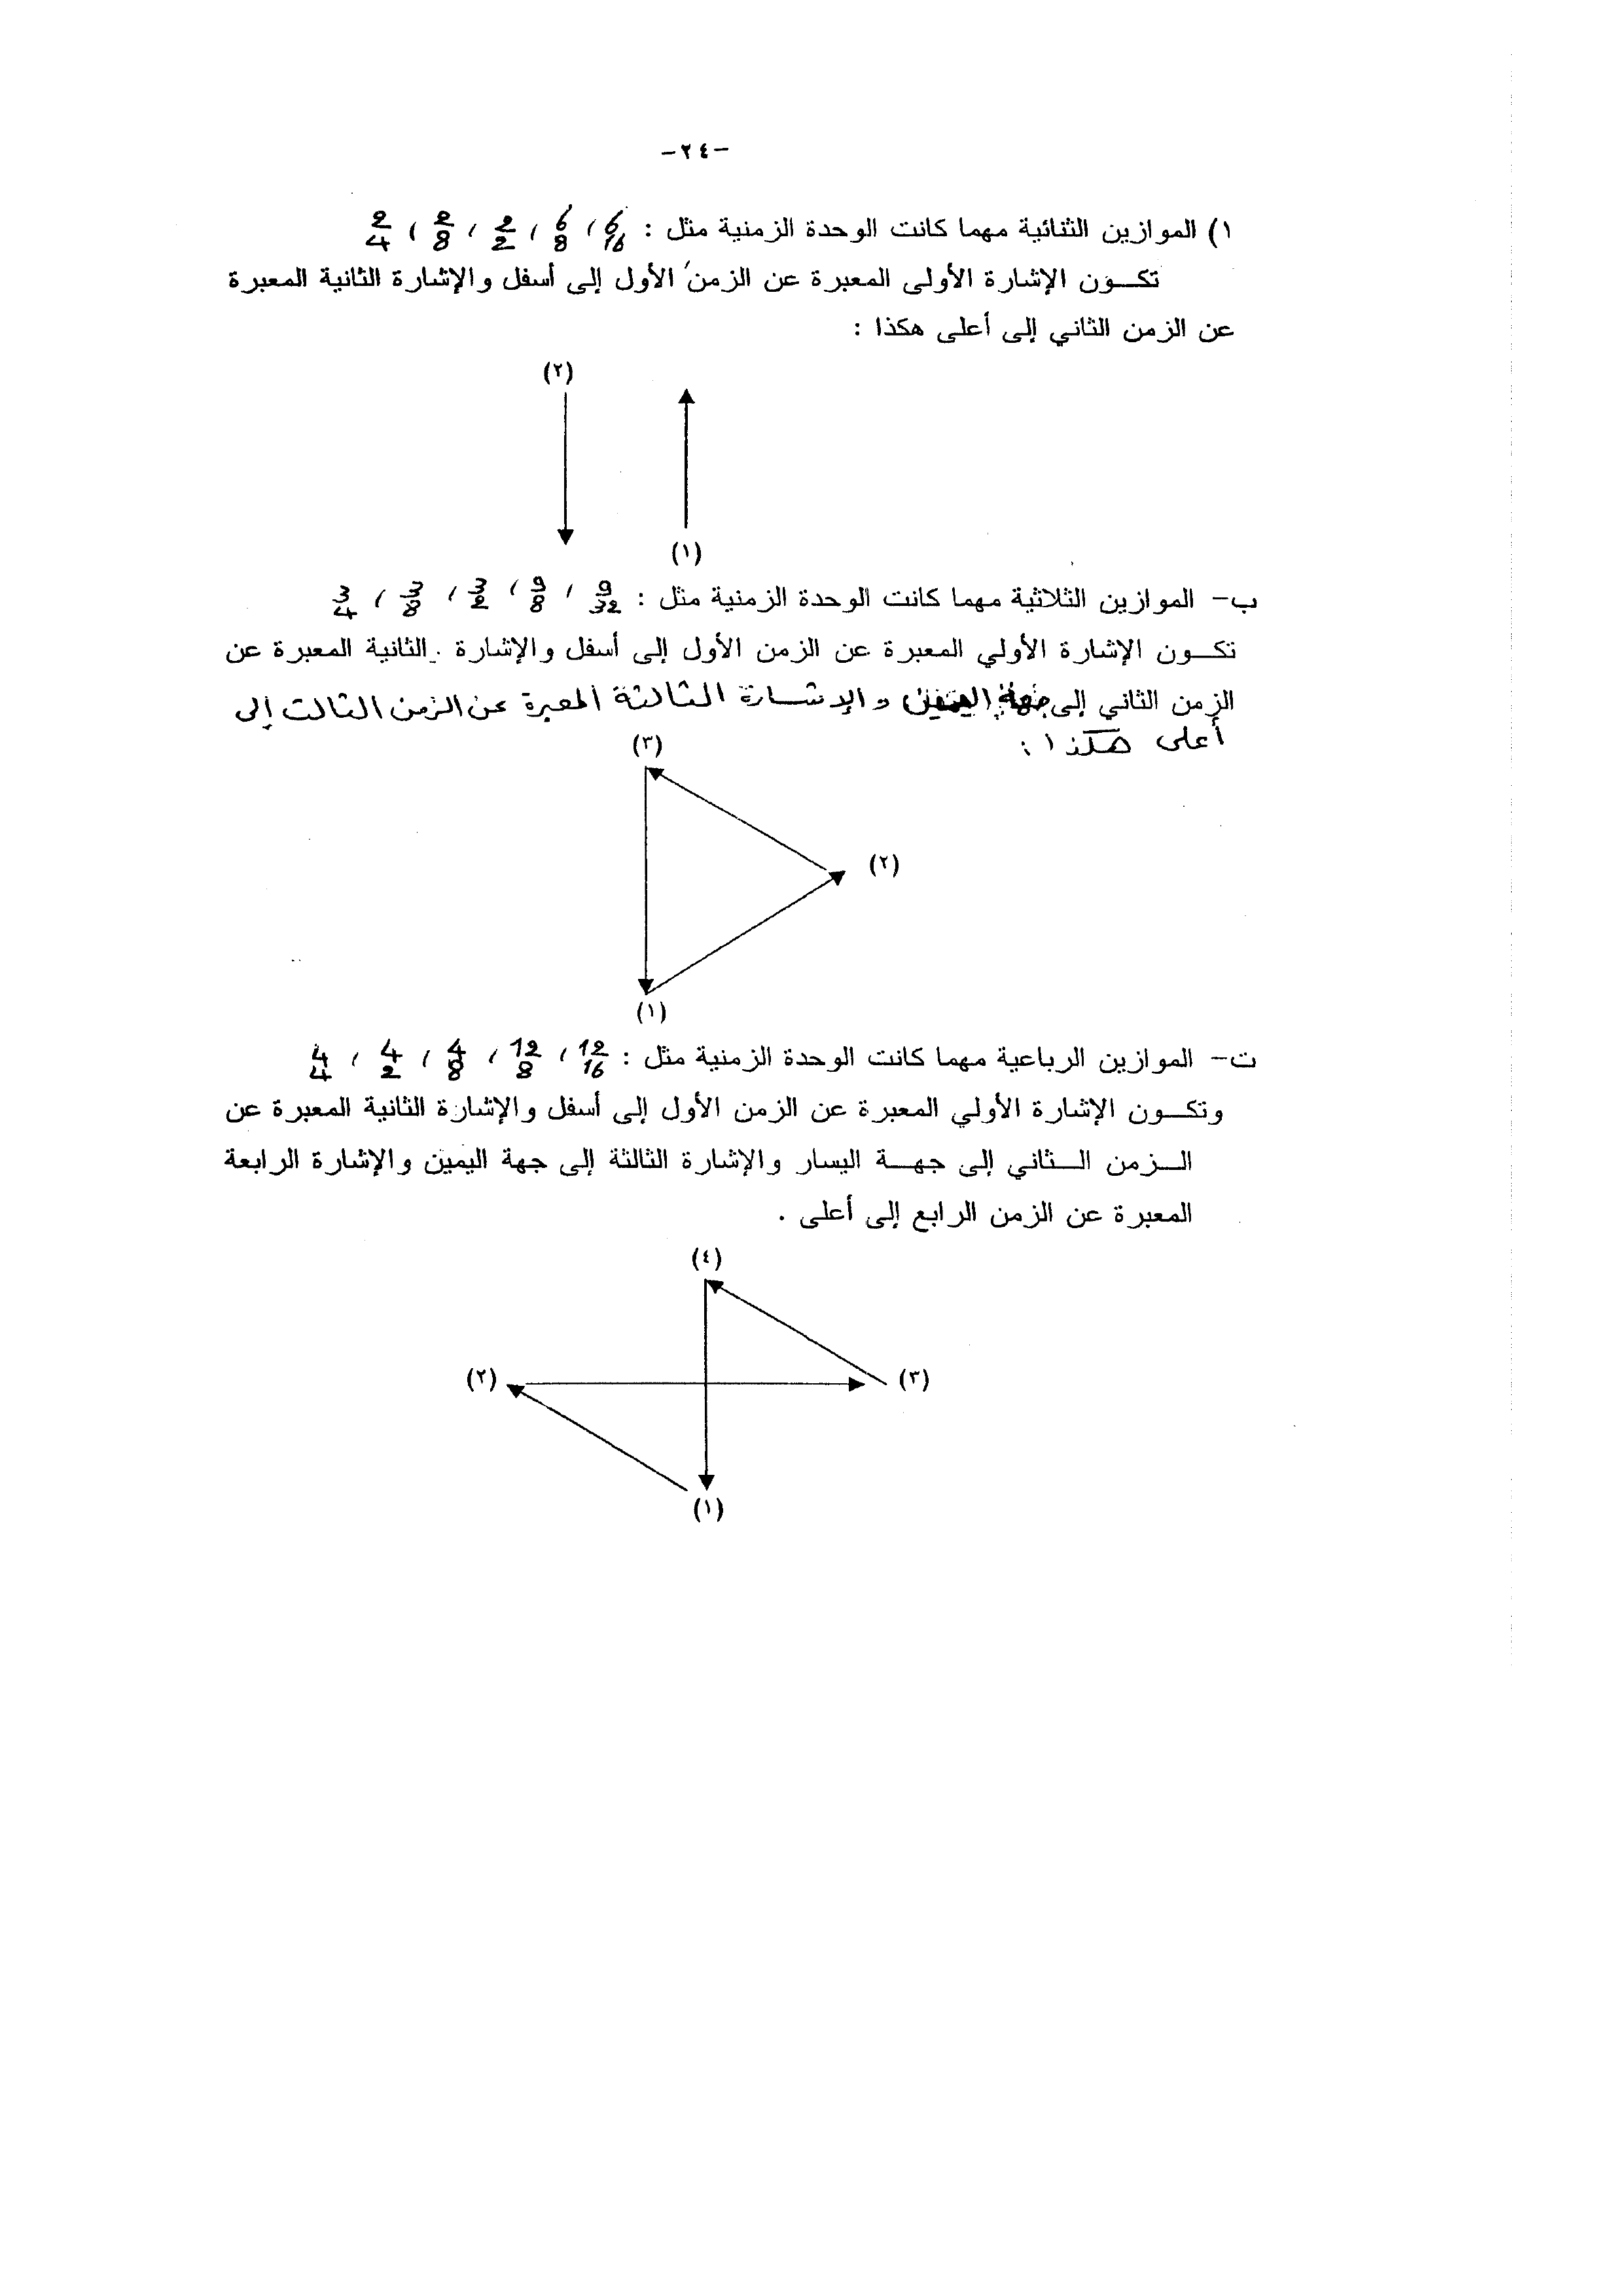 -٢٤-
١) الموازين الثنائية مهما كانت الوحدة الزمنية مثل : 6/16 ، 6/8 ، 2/2 ، 2/8 ، 2/4
تكـون الإشارة الأولى المعبرة عن الزمن الأول إلى أسفل والإشارة الثانية المعبرة
عن الزمن الثاني إلى أعلى هكذا :
(٢)
(١)
ب- الموازين الثلاثية مهما كانت الوحدة الزمنية مثل : 9/32 ، 9/8 ، 3/2 ، 3/8 ، 3/4
تكـون الإشارة الأولي المعبرة عن الزمن الأول إلى أسفل والإشارة . الثانية المعبرة عن
الزمن الثاني إلى جهة اليمين والإشارة الثالثة المعبرة عن الزمن الثالث إلى
أعلى هكذا :
(٣)
(٢)
(١)
ت- الموازين الرباعية مهما كانت الوحدة الزمنية مثل : 12/16 ، 12/8 ، 4/8 ، 4/2 ، 4/4
وتكـون الإشارة الأولي المعبرة عن الزمن الأول إلى أسفل والإشارة الثانية المعبرة عن
الـزمن الـثاني إلى جهـة اليسار والإشارة الثالثة إلى جهة اليمين والإشارة الرابعة
المعبرة عن الزمن الرابع إلى أعلى .
(٤)
(٣) (٢)
(١)